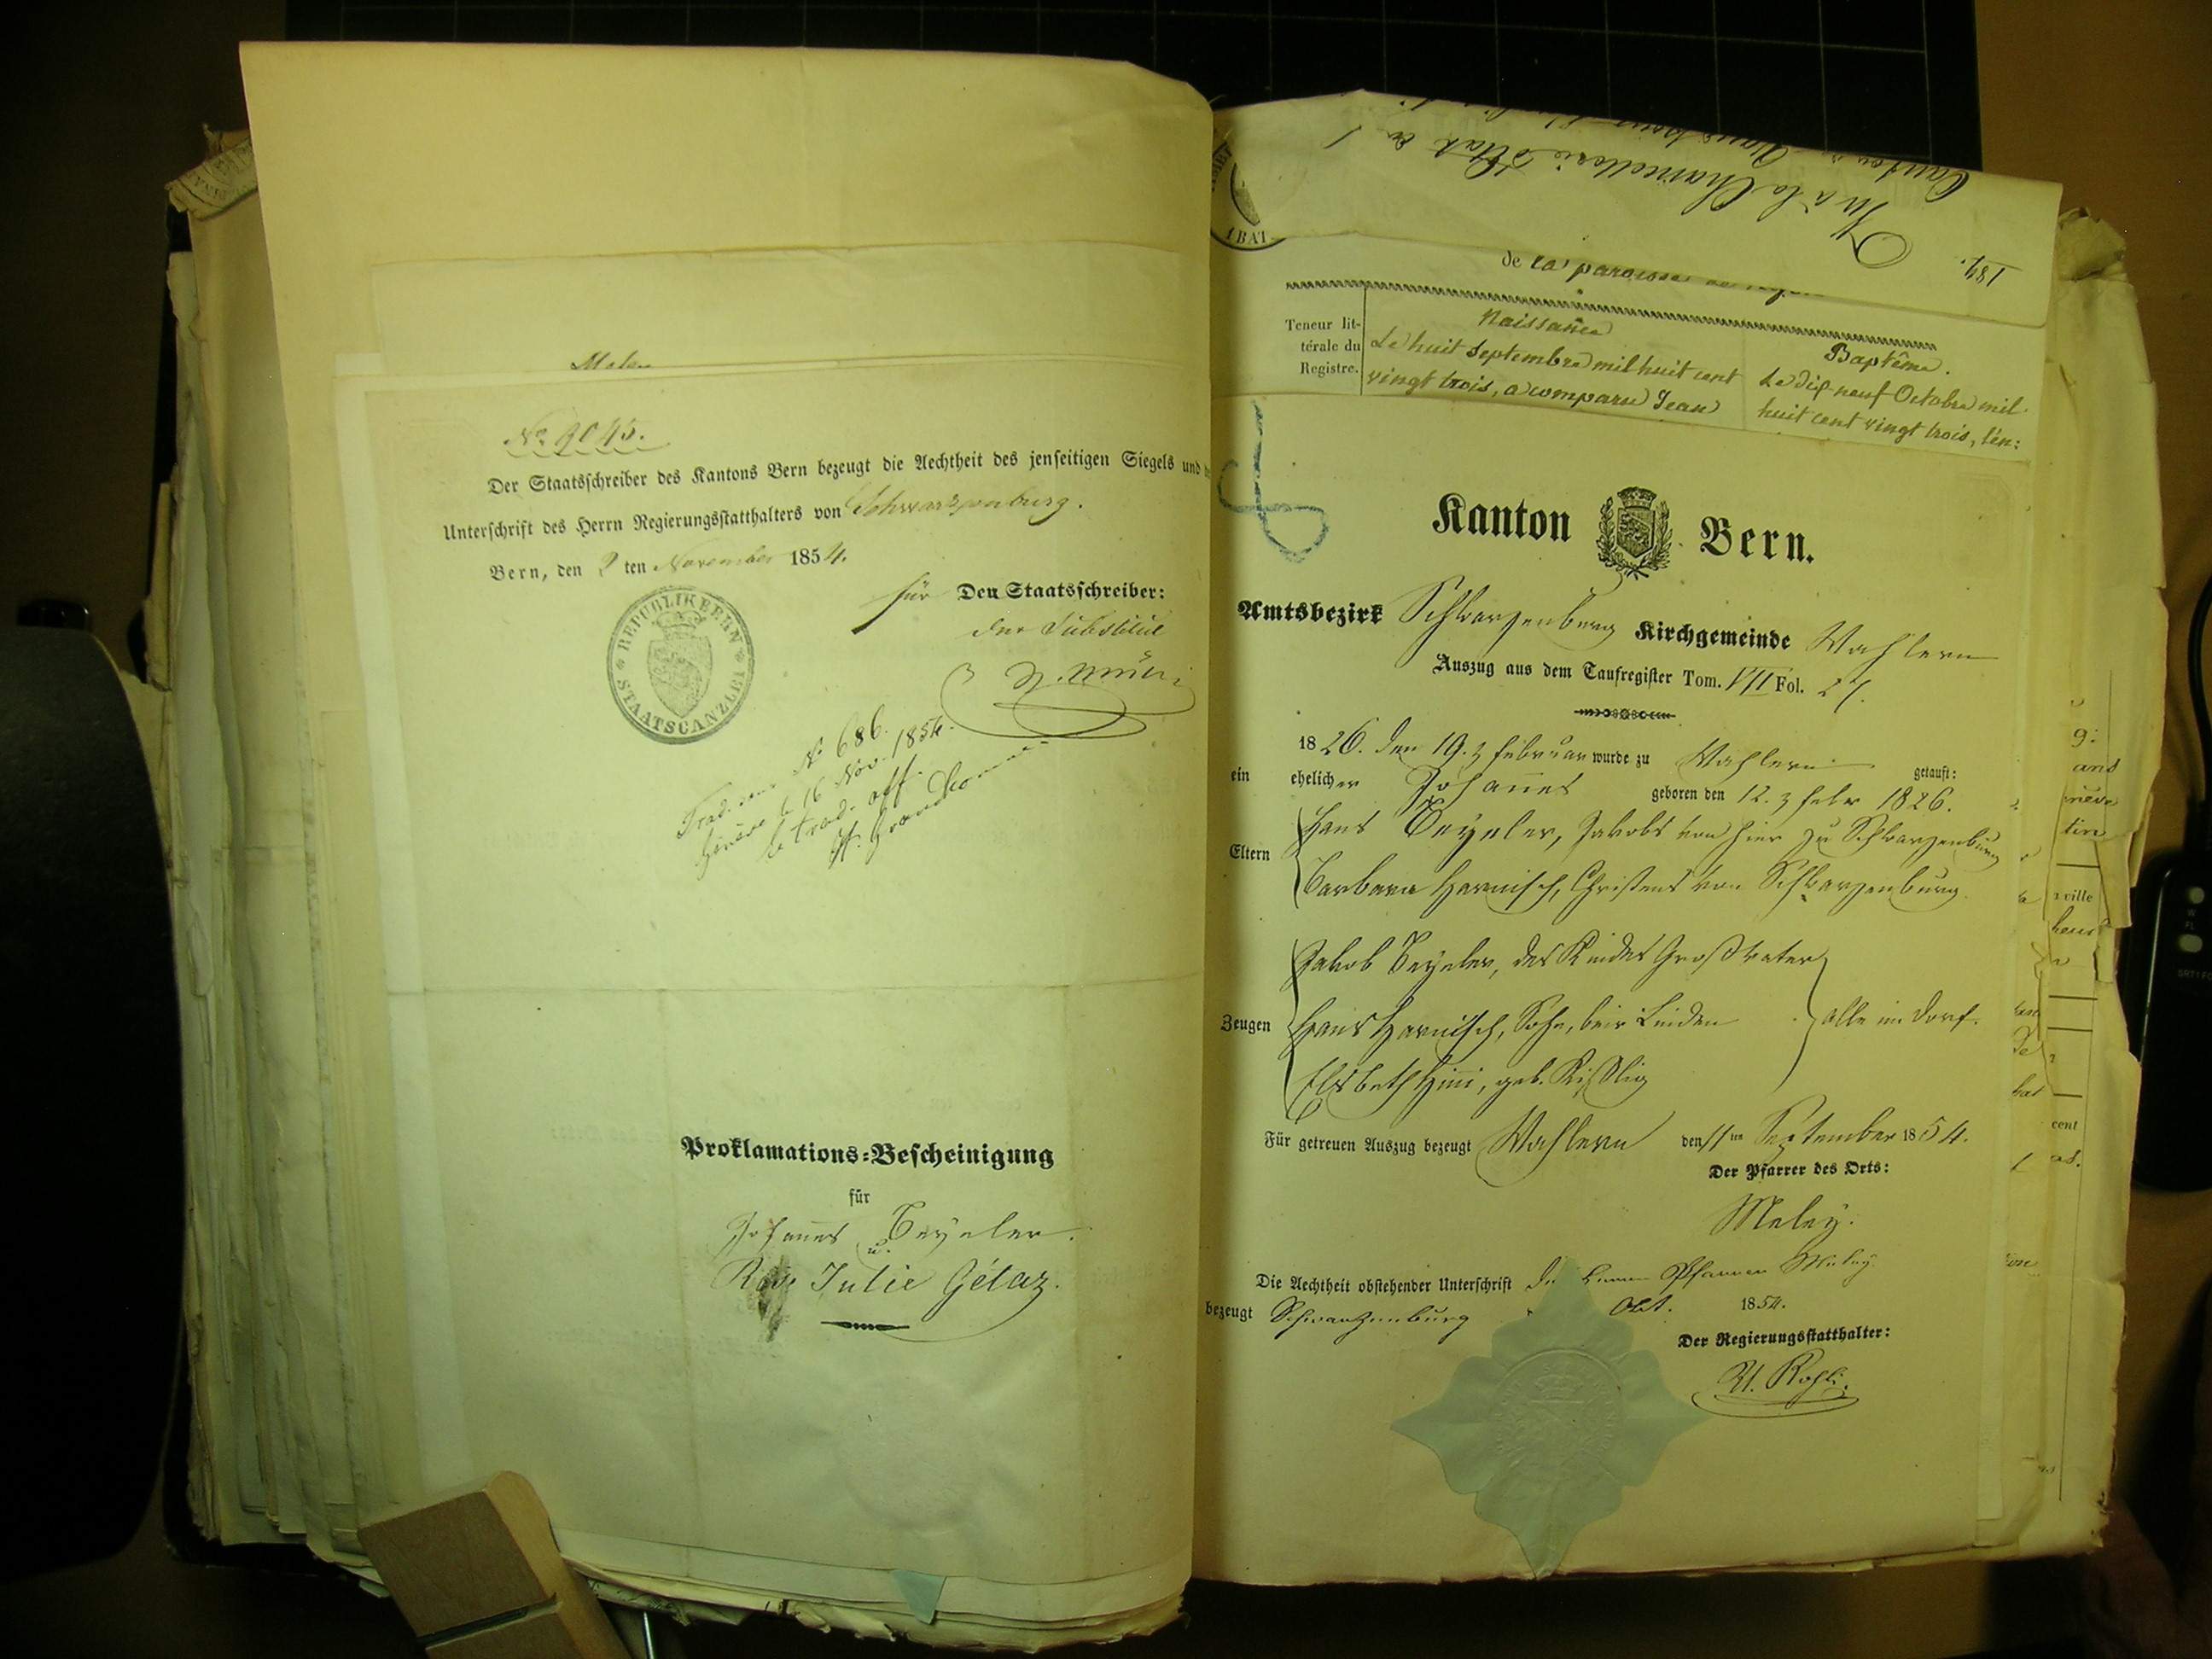 No 9045.
Der Staatsschreiber des Kantons Bern bezeugt die Aechtheit des jenseitigen Siegels und
Unterschrift des Herrn Regierungsstatthalters von Schwarzenburg.
Bern, den 2 ten November 1854.
für Den Staatsschreiber:
Der Substitut
REPUBLIK BERN
STAATSCANZLEI
No 686.
Genève le 16 Nov. 1854.
le trad. off.
Proklamations-Bescheinigung
für
Johannes Beyeler.
u.
Rose Julie Gélaz.
Vu à la Chancellerie d'Etat
184
1 BAT
de la paroisse
Teneur lit-
térale du
Registre.
Naissance
Le huit Septembre mil huit cent
vingt trois, a comparu Jean
Baptême.
Le dix-neuf Octobre mil
huit cent vingt trois, l'en:
Kanton Bern.
Amtsbezirk Schwarzenburg Kirchgemeinde Wahlern
Auszug aus dem Taufregister Tom. VII Fol. 21.
1826. den 19. Februar wurde zu Wahlern getauft:
ein ehelicher Johannes geboren den 12. Febr 1826.
Eltern
Hans Beyeler, Jakobs von hier zu Schwarzenburg
Barbara Harnisch, Christens von Schwarzenburg.
Zeugen
Jakob Beyeler, des Kindes Großvater
Hans Harnisch, Sohn, beir Linden
alle im Dorf.
Elsbeth Hiñi, geb. Kißlig
Für getreuen Auszug bezeugt Wahlern den 11ten September 1854.
Der Pfarrer des Orts:
Meley.
Die Aechtheit obstehender Unterschrift des Herrn Pfarrer Meley
bezeugt Schwarzenburg Oct. 1854.
Der Regierungsstatthalter: